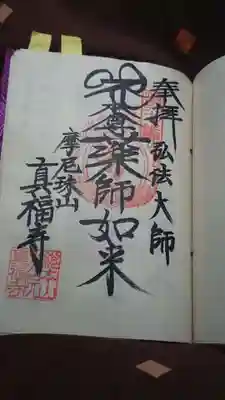 奉拝 弘法大師
本尊薬師如来
摩尼珠山
真福寺